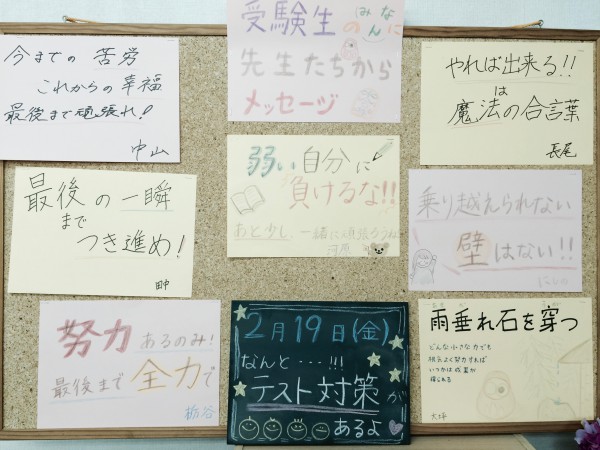 今までの 苦労
これからの幸福
最後まで頑張れ!
中山
受験生のみなさんに
先生たちから
メッセージ
やれば出来る!!
は
魔法の合言葉
長尾
最後の一瞬
まで
つき進め!
田中
弱い自分に
負けるな!!
あと少し、一緒に頑張ろうね
河原
乗り越えられない
壁はない!!
努力あるのみ!
最後まで全力で
栃谷
2月19日(金)
なんと・・・!!!
テスト対策が
あるよ
雨垂れ石を穿つ
どんな小さな力でも
根気よく努力すれば
いつかは成果が
得られる
大坪